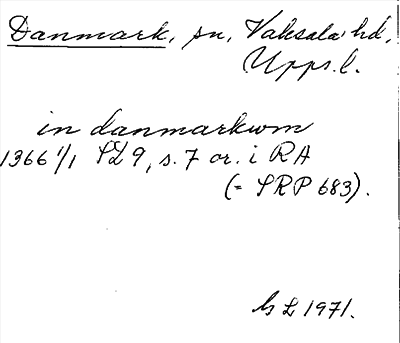 Danmark, sn, Vaksala hd,
Upps. l.
in danmarkum
1366 1/1 SL 9, s. 7 or. i RA
(= SRP 683).
L 1971.